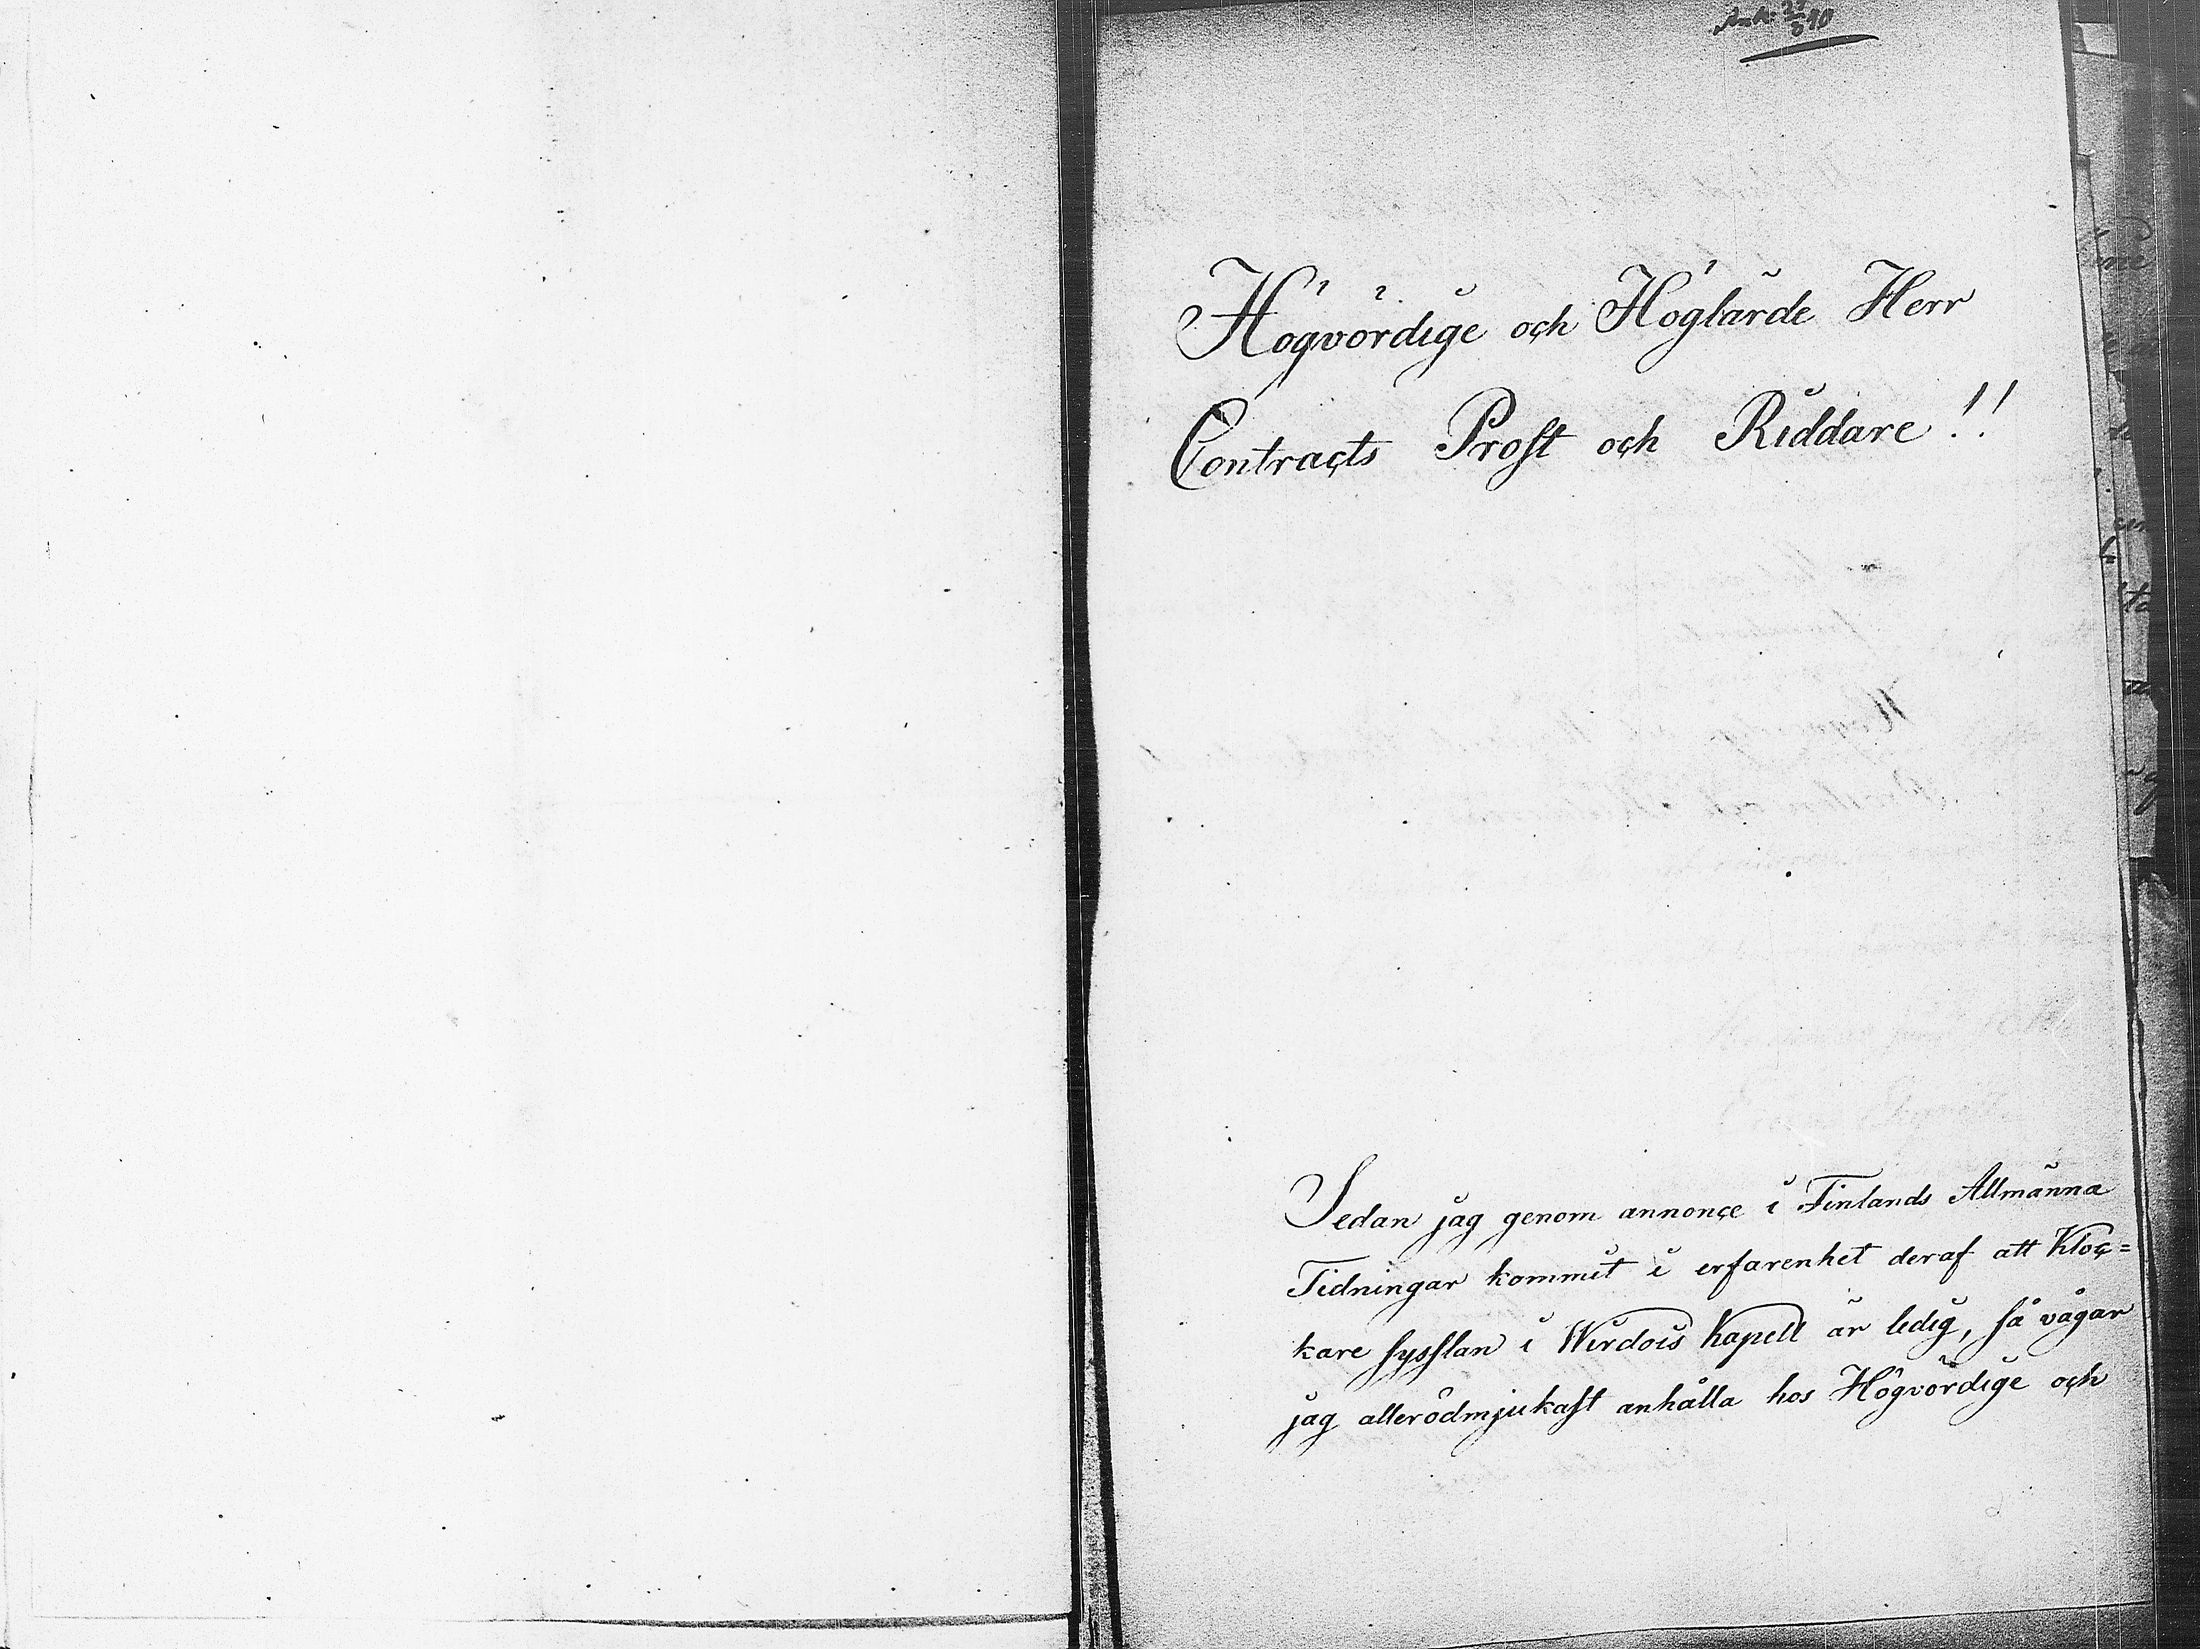 Högvördige och Höglärde Herr
Contracts Prost och Riddare!!
Sedan jag genom annonce i Finlands Allmänna
Tidningar kommit i erfarenhet deraf att Kloc=
kare sysslan i Wirdois Kapell är ledig, så vågar
jag allerödmjukast anhålla hos Högvördige och